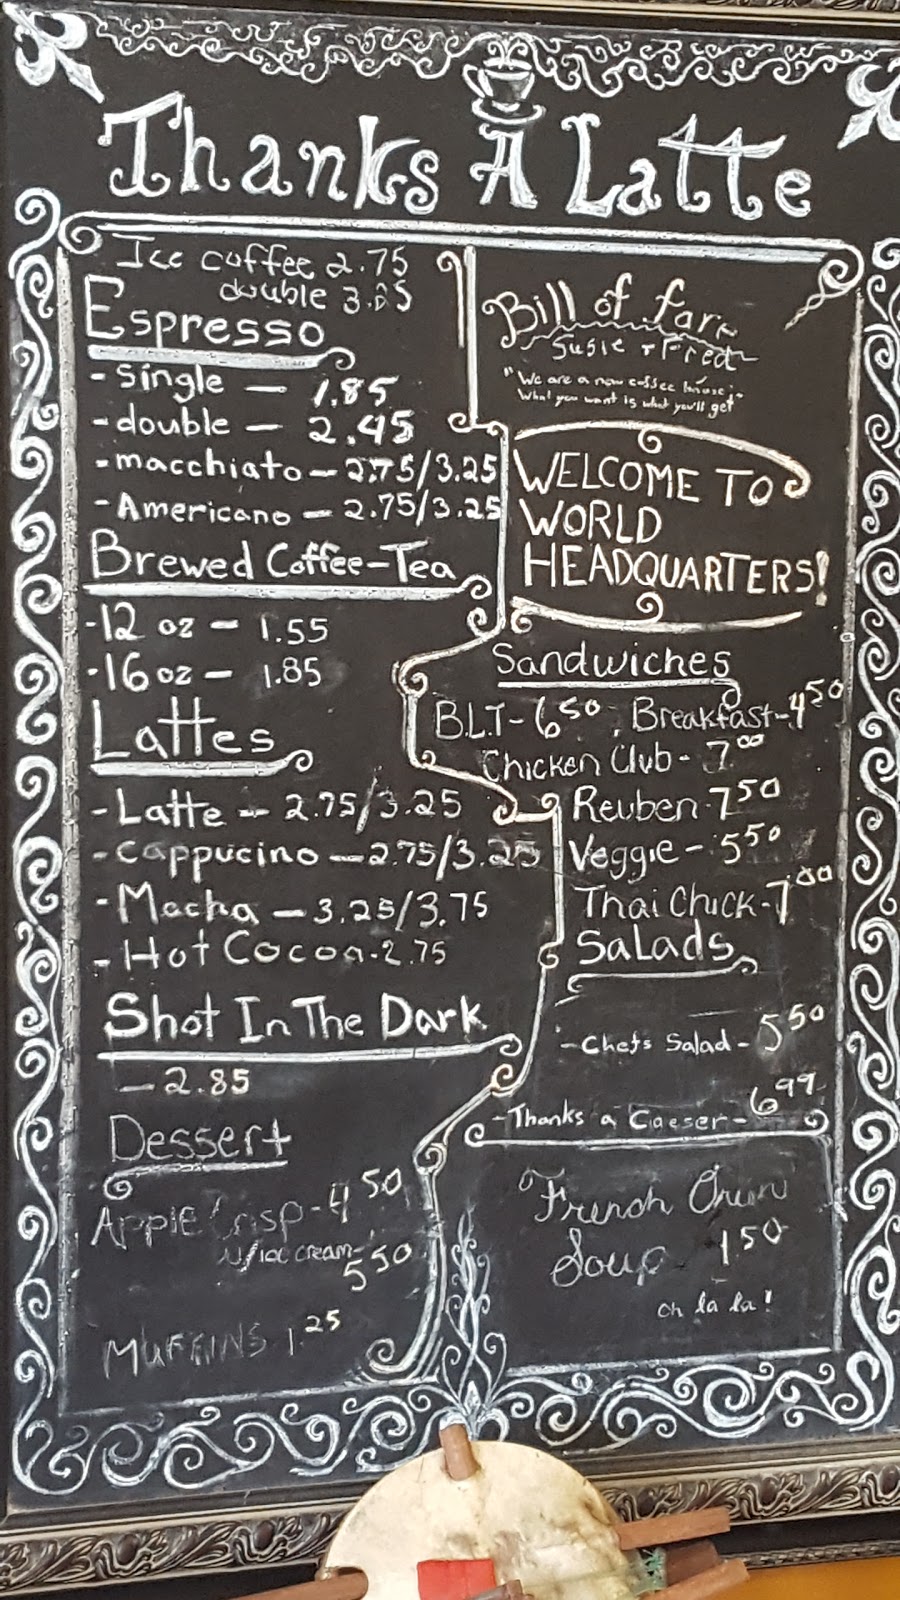 Thanks A Latte
Ice coffee 2.75
double 3.85
Espresso
- single — 1.85
- double — 2.45
- macchiato — 2.75/3.25
- Americano — 2.75/3.25
Brewed Coffee-Tea
- 12 oz - 1.55
- 16 oz - 1.85
Lattes
- Latte - 2.75/3.25
- cappucino — 2.75/3.25
- Mocha — 3.25/3.75
- Hot Cocoa - 2.75
Shot In The Dark
— 2.85
Dessert
Apple Crisp - 4 50
w/ice cream - 5 50
MUFFINS 1.25
Bill of fare
Susie + Fred
"We are a now coffee house:
What you want is what you'll get"
WELCOME TO
WORLD
HEADQUARTERS!
Sandwiches
B.L.T - 6 50, Breakfast - 4 50
Chicken Club - 7 00
Reuben - 7 50
Veggie - 5 50
Thai Chick - 7 00
Salads
- Chefs Salad - 5 50
- Thanks a Caeser - 6 99
French Onion
Soup 1 50
oh la la!